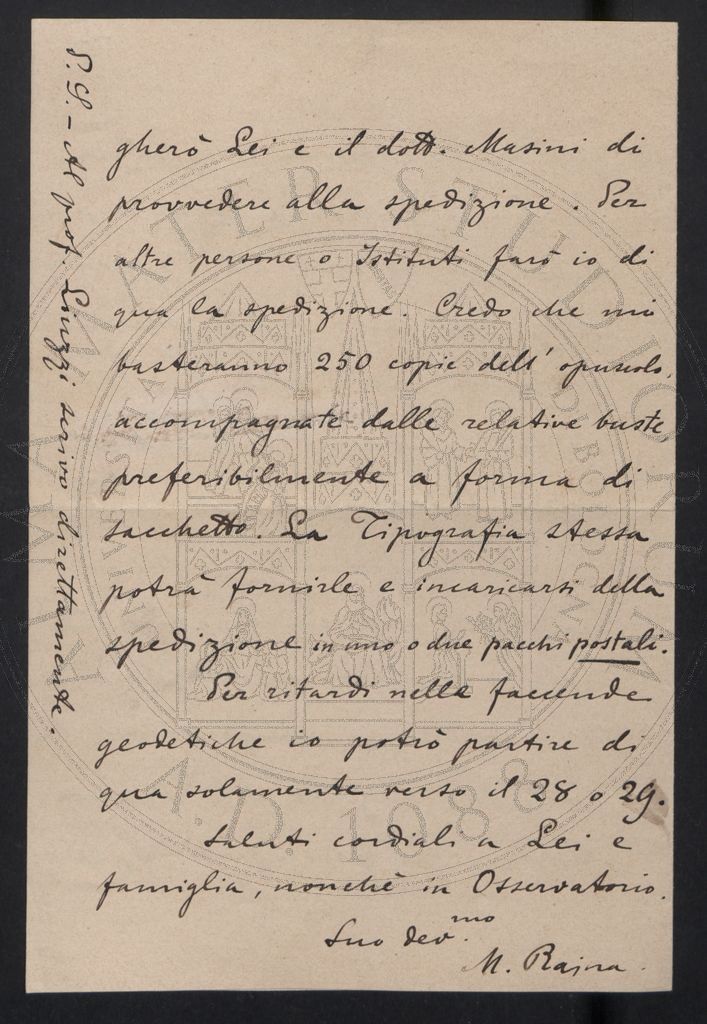 gherò Lei e il dott. Masini di
provvedere alla spedizione. Per
altre persone o Istituti farò io di
qua la spedizione. Credo che mi
basteranno 250 copie dell' opuscolo,
accompagnate dalle relative buste,
preferibilmente a forma di
sacchetto. La Tipografia stessa
potrà fornirle e incaricarsi della
spedizione in uno o due pacchi postali.
Per ritardi nelle faccende
geodetiche io potrò partire di
qua solamente verso il 28 o 29.
Saluti cordiali a Lei e
famiglia, nonchè in Osservatorio.
Suo dev.mo
M. Rajna.
P. S. - Al prof. Liuzzi scrivo direttamente.
ALMA MATER STUDIORUM
A.D. 1088